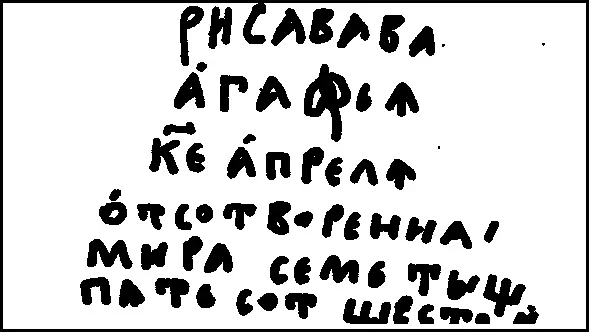 РИСАВАВА
А́ГАФЬѦ
К҃Е А́ПРЕЛѦ
О́ТСОТВОРЕННА
МИРА СЕМЬ ТЫЩ
ПАТЬ СОТ ШЕСТОЙ